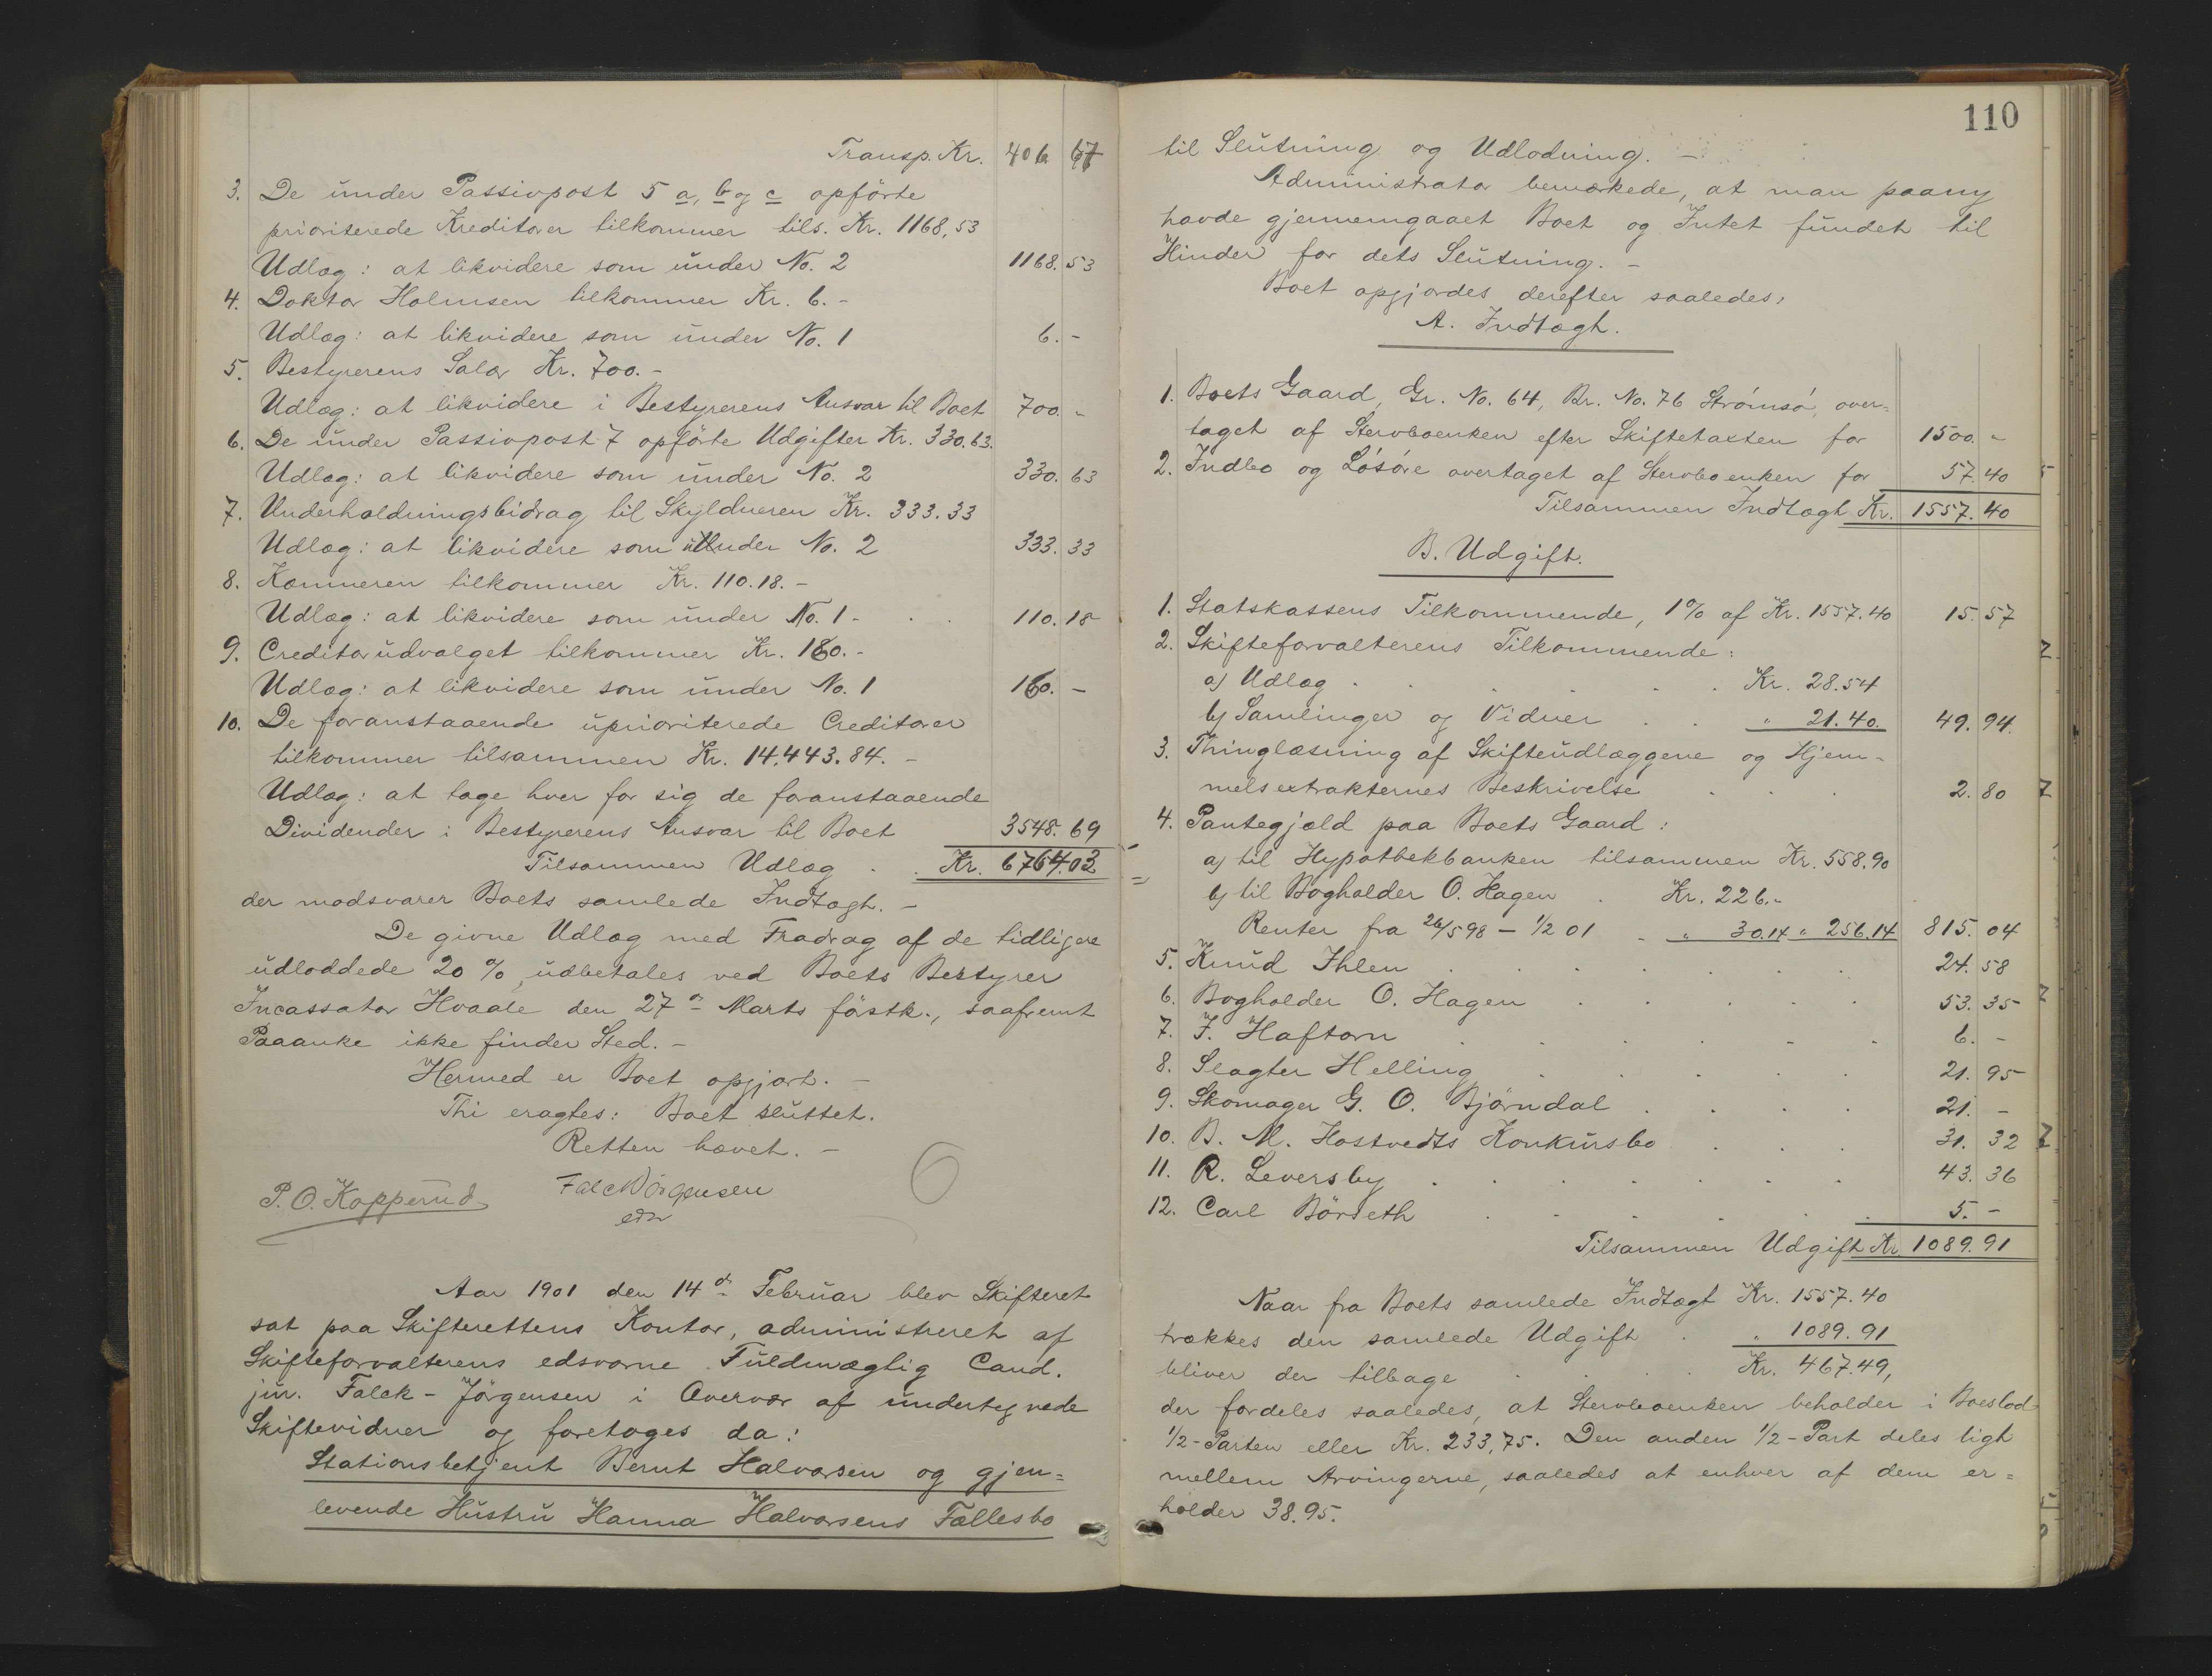 Transp. Kr. 406 67
3. De under Passivpost 5 a, b og c opförte
prioriterede Kreditorer tilkommer tils. Kr. 1168,53
Udlæg: at likvidere som under No. 2 1168. 53
4. Doktor Holmsen tilkommer Kr. 6.-
Udlæg: at likvidere som under No. 1 6. -
5. Bestyrerens Salær Kr. 700.-
Udlæg: at likvidere i Bestyrerens Ansvar til Boet 700. "
6. De under Passivpost 7 opförte Udgifter Kr. 330.63.
Udlæg: at likvidere som under No. 2 330. 63
7. Underholdningsbidrag til Skyldneren Kr. 333.33
Udlæg: at likvidere som under No. 2 333. 33
8. Kæmneren tilkommer Kr. 110.18.-
Udlæg: at likvidere som under No. 1 - . . 110. 18
9. Creditorudvalget tilkommer Kr. 160.-
Udlæg: at likvidere som under No. 1 160. -
10. De foranstaaende uprioriterede Creditorer
tilkommer tilsammen Kr. 14,443.84. -
Udlæg: at tage hver for sig de foranstaaende
Dividender i Bestyrerens Ansvar til Boet 3548. 69
Tilsammen Udlæg . . Kr. 6764.03
der modsvarer Boets samlede Indtægt. -
De givne Udlæg med Fradrag af de tidligere
udloddede 20 %, udbetales ved Boets Bestyrer
Incassator Hvaale den 27de Marts förstk., saafremt
Paaanke ikke finder Sted. -
Hermed er Boet opgjort. -
Thi eragtes: Boet sluttet.
Retten hævet. -
P. O. Kopperud Falck Jörgensen
edsv
Aar 1901 den 14de Februar blev Skifteret
sat paa Skifterettens Kontor, administreret af
Skifteforvalterens edsvorne Fuldmægtig Cand.
jur. Falck-Jörgensen i Overvær af undertegnede
Skiftevidner og foretoges da:
Stationsbetjent Bernt Halvorsen og gjen=
levende Hustru Hanna Halvorsens Fællesbo
110
til Slutning og Udlodning. -
Administrator bemærkede, at man paany
havde gjennemgaaet Boet og Intet fundet til
Hinder for dets Slutning. -
Boet opgjordes derefter saaledes,
A. Indtægt.
1. Boets Gaard, Gr. No. 64, Br. No. 76 Strömsö, over=
taget af Stervboenken efter Skiftetaxten for 1500. "
2. Indbo og Lösöre overtaget af Stervboenken for 57. 40
Tilsammen Indtægt Kr. 1557. 40
B. Udgift.
1. Statskassens Tilkommende, 1% af Kr. 1557.40 15. 57
2. Skifteforvalterens Tilkommende:
a) Udlæg . . . . . Kr. 28.54
b) Samlinger og Vidner . . " 21.40. 49. 94.
3. Thinglæsning af Skifteudlæggene og Hjem=
melsextrakternes Beskrivelse . . . 2. 80
4. Pantegjæld paa Boets Gaard:
a) til Hypothekbanken tilsammen Kr. 558.90
b) til Bogholder O. Hagen . Kr. 226.-
Renter fra 26/5 98 - 1/2 01 - " 30.14 " 256.14 815. 04
5. Knud Ihlen . . . . . . 24. 58
6. Bogholder O. Hagen . . . . . 53. 35
7. J. Haftorn . . . . . . 6. -
8. Slagter Helling . . . . . 21. 95
9. Skomager G. O. Björndal . . . . 21. -
10. B. M. Hostvedts Konkursbo . . . 31. 32
11. R. Leversby . . . . . . 43. 36
12. Carl Börseth . . . . . 5. -
Tilsammen Udgift Kr. 1089. 91
Naar fra Boets samlede Indtægt Kr. 1557.40
trækkes den samlede Udgift . " 1089.91
bliver der tilbage . . . Kr. 467.49,
der fordeles saaledes, at Stervboenken beholder i Boeslod
1/2-Parten eller Kr. 233,75. Den anden 1/2-Part deles ligt
mellem Arvingerne, saaledes at enhver af dem er=
holder 38.95.